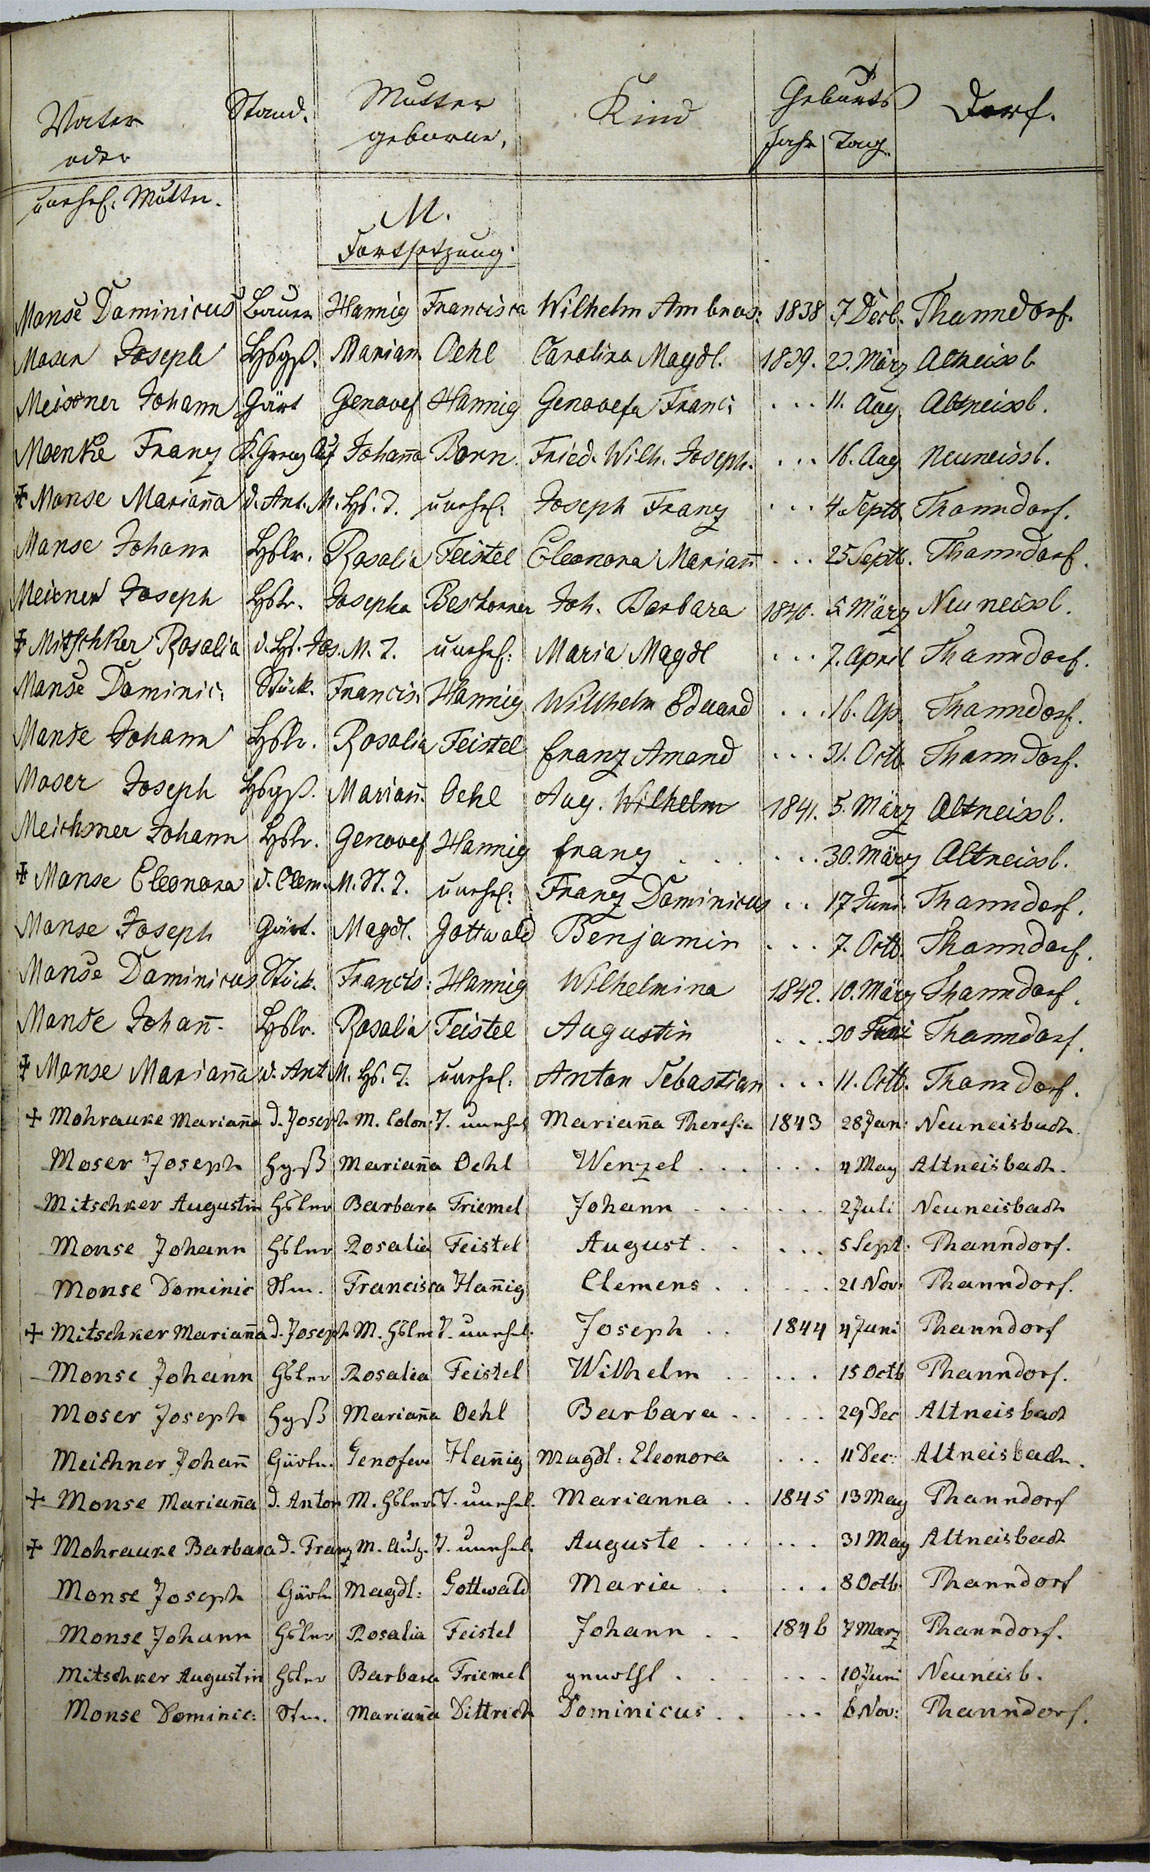 Vater Stand. Mutter Kind Geburts Dorf.
oder geborne, Jahr Tag
unehel. Mutter.
M.
Fortsetzung.
Monse Dominicus Bauer Hannig Francisca Wilhelm Ambros: 1838 7 Decb. Thanndorf.
Moser Joseph Hsgß. Marian Oehl Carolina Magdl. 1839. März Altneissb.
Meissner Johann Gärt Genovef Hannig Genovefa Franc: . . . 11. Aug. Altneissb.
Moenke Franz Johanna Born Fried. Wilh. Joseph. . . . 16. Aug Neuneissb.
+ Monse Marianna d. Ant. M. Hs. T. unehel: Joseph Franz . . . 4. Septb. Thanndorf.
Monse Johann Hslr. Rosalia Feistel Eleonora Mariann . . . 25 Septb. Thanndorf.
Meixner Joseph Hslr. Josepha Beschorner Joh. Barbara 1840. 5. März Neuneissb.
+ Mitschker Rosalia d. Hs. Jos. M. T. unehel: Maria Magdl . . . 7. April Thanndorf.
Monse Dominic: Stück. Francis: Hannig Willhelm Eduard . . . 16. Ap. Thanndorf.
Monse Johann Hslr. Rosalia Feistel Franz Amand . . . 31. Octb. Thanndorf.
Moser Joseph Hsgß. Mariann. Oehl Aug. Wilhelm 1841. 5. März Altneissb.
Meichsner Johann Hslr. Genovef Hannig Franz . . . . . . 30. März Altneissb.
+ Monse Eleonora d. Clem. M. St. T. unehel: Franz Dominicus . . 17 Juni. Thanndorf.
Monse Joseph Gärt. Magdl. Gottwald Benjamin . . . 7. Octb. Thanndorf.
Monse Dominicus Stück. Francis: Hannig Wilhelmina 1842. 10. März Thanndorf.
Monse Johann. Hslr. Rosalia Feistel Augustin . . . 20 Juni Thanndorf.
+ Monse Marianna d. Ant M. Hs. T. unehel: Anton Sebastian . . . 11. Octb. Thanndorf.
+ Mohraure Marianna d. Joseph M. Colon: T. unehel Marianna Theresia 1843 28 Jan: Neuneisbach.
Moser Joseph Hgß Marianna Oehl Wenzel . . . . . . 4 May Altneisbach.
Mitschker Augustin Hslner Barbara Friemel Johann . . . . . . 2 Juli Neuneisbach
Monse Johann Hslner Rosalia Feistel August . . . . . 5 Sept. Thanndorf.
Monse Dominic Stm. Francisca Hannig Clemens . . . . . 21 Nov: Thanndorf.
+ Mitschker Marianna d. Joseph M. Hslner T. unehel. Joseph . . 1844 4 Juni Thanndorf
Monse Johann Hslner Rosalia Feistel Wilhelm . . . . . 15 Octb Thanndorf.
Moser Joseph Hgß Marianna Oehl Barbara . . . . . 29 Dec Altneisbach
Meichner Johann Gärtn. Genofeva Hannig Magdl: Eleonora . . . 11 Dec: Altneisbach.
+ Monse Marianna d. Anton M. Hslners T. unehel. Marianna . . 1845 13 May Thanndorf
+ Mohraure Barbara d. Franz M. T. unehel. Auguste . . . . . . 31 May Altneisbach
Monse Joseph Gärtn Magdl: Gottwald Maria . . . . . 8 Octb. Thanndorf
Monse Johann Hslner Rosalia Feistel Johann . . 1846 7 März Thanndorf.
Mitschker Augustin Hslner Barbara Friemel . . . . 10 Juni Neuneisb.
Monse Dominic: Stm. Marianna Dittrich Dominicus . . . . . 6 Nov: Thanndorf.